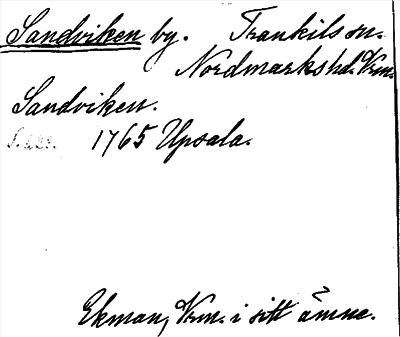 Sandviken by. Trankils sn.
Nordmarks hd. Vrm.
Sandviken.
1765 Upsala.
Ekman, Vrm. i sitt ämne.